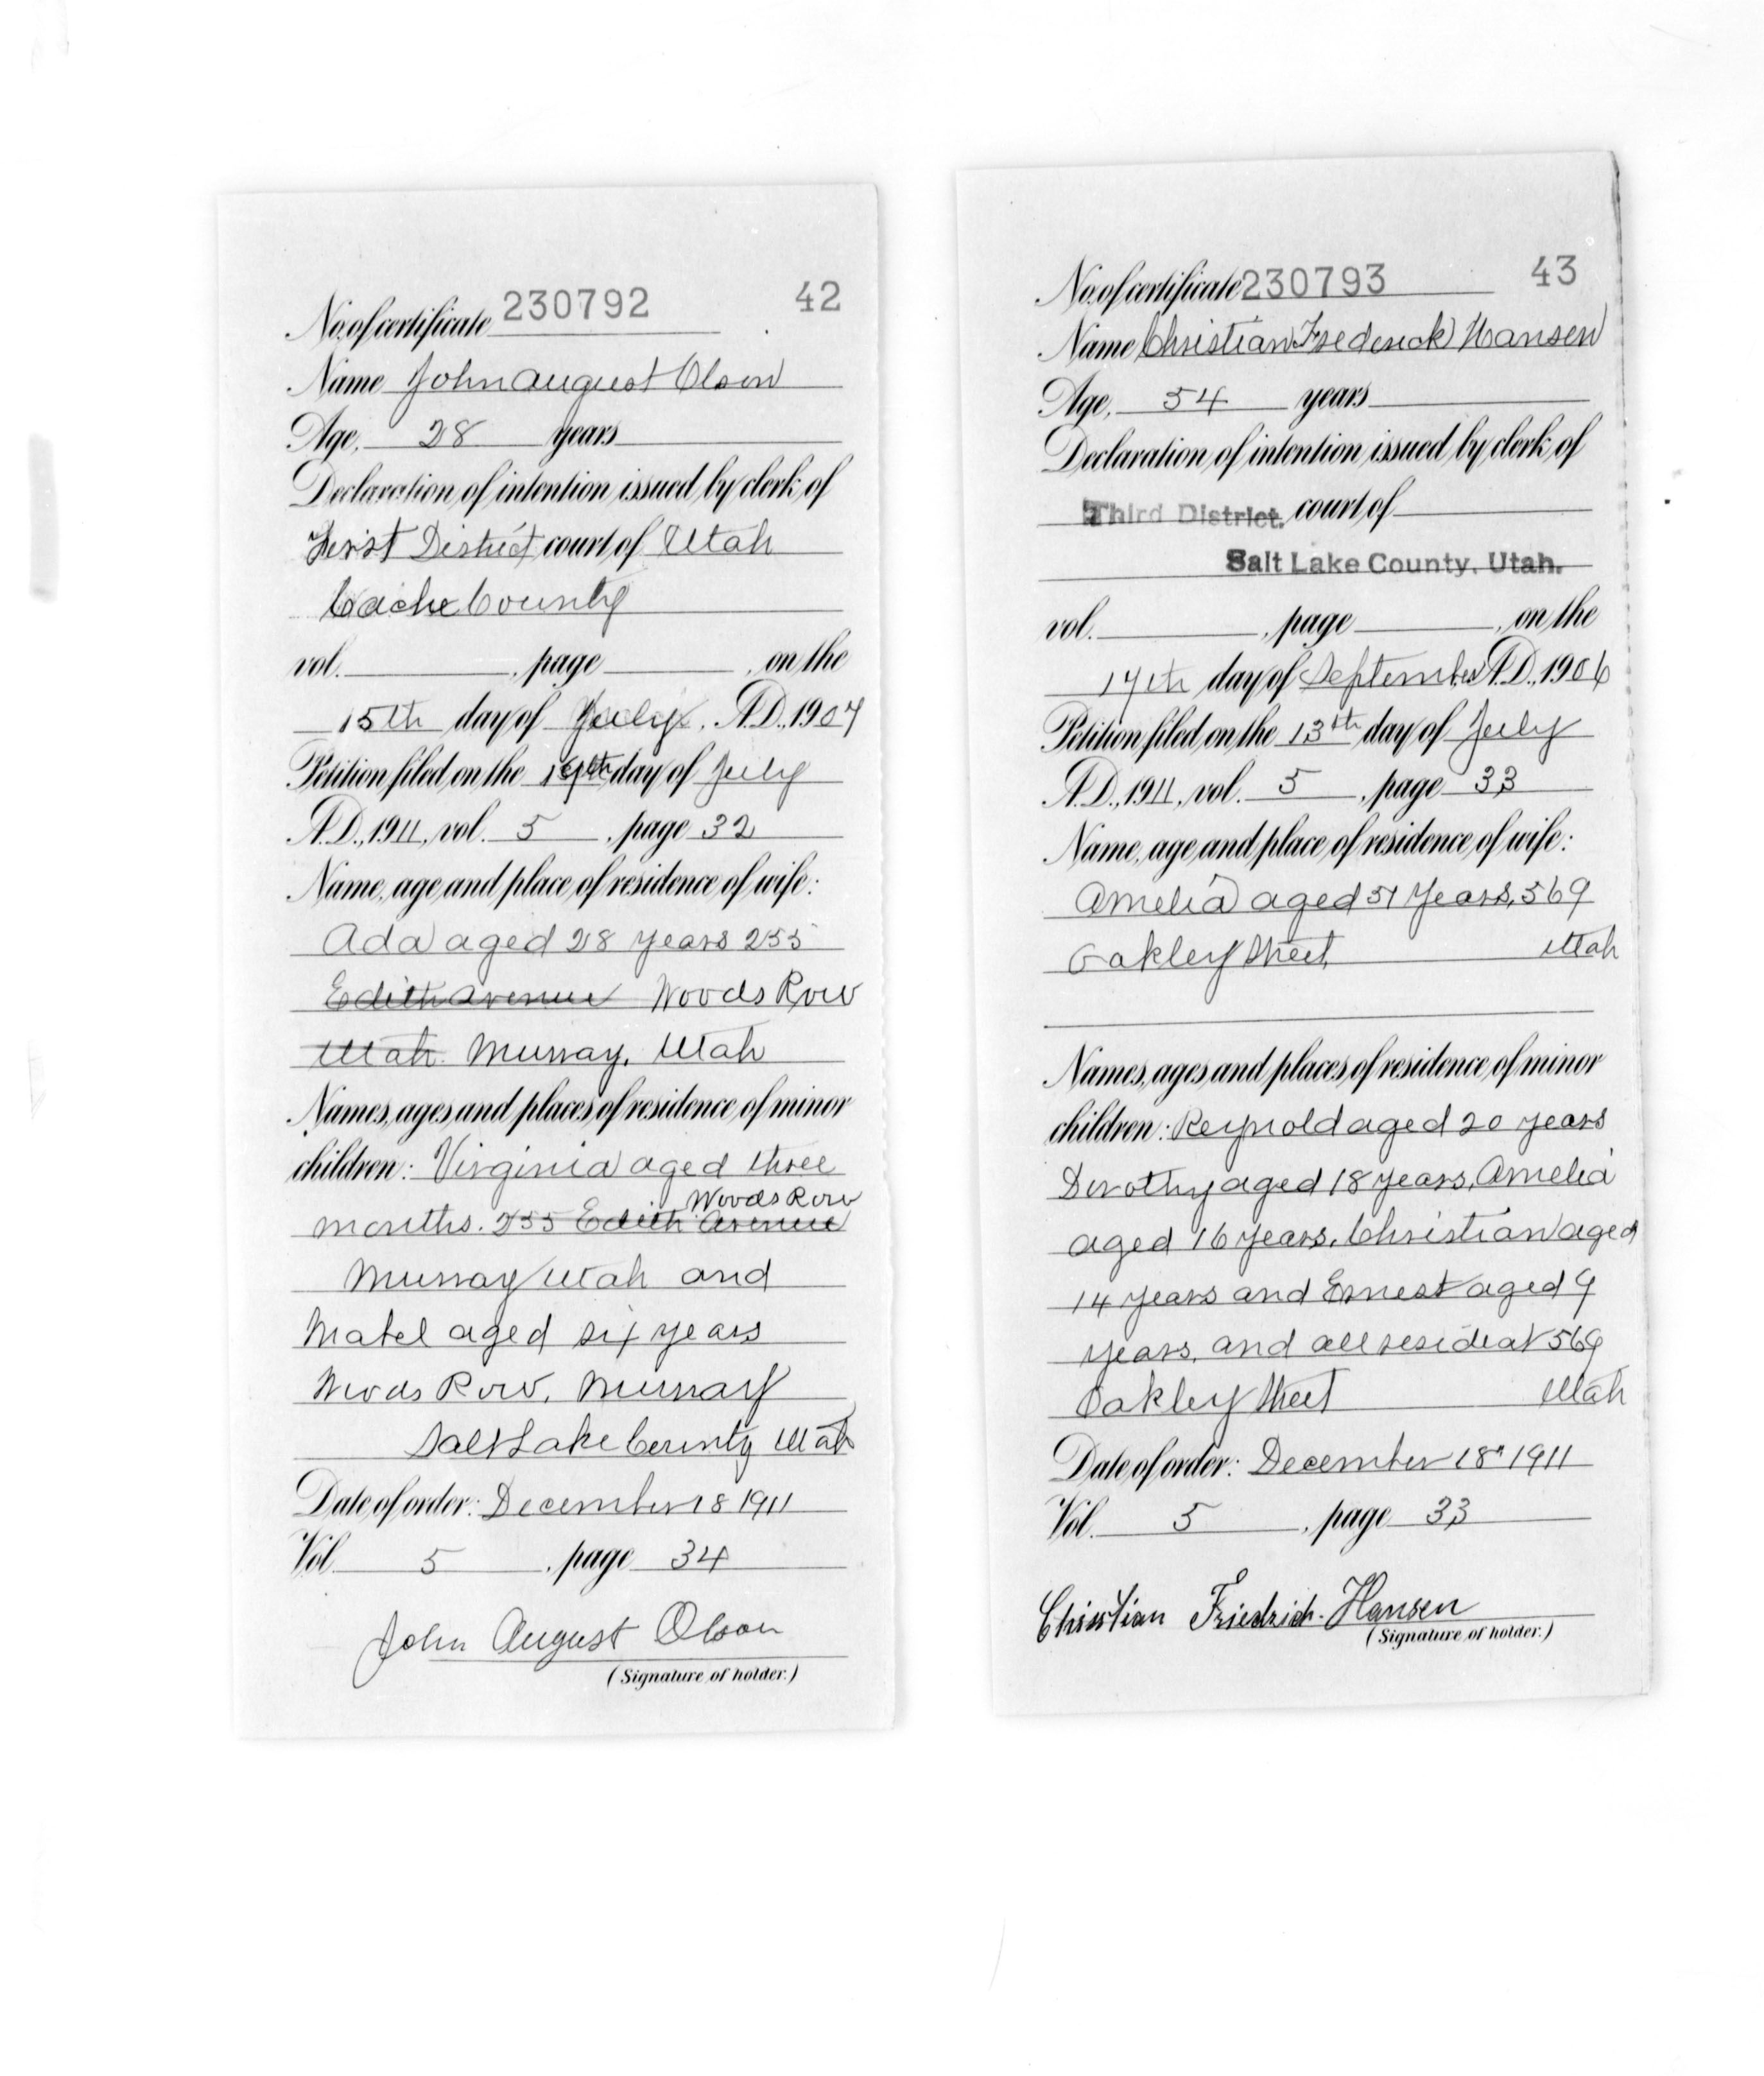 No. of certificate 230792 42
Name John August Olson
Age, 28 years
Declaration of intention issued by clerk of
First District court of Utah
Cache County
vol. , page , on the
15th day of July, A.D., 1907
Petition filed on the day of July
A.D., 1911, vol. 5 , page 32
Name, age and place of residence of wife:
Ada aged 28 years 255
Edith Avenue Woods Row
Utah. Murray, Utah
Names, ages and places of residence of minor
children: Virginia aged three
Woods Row
months. 255 Edith Avenue
Murray Utah and
Mabel aged six years
Woods Row, Murray
Salt Lake County Utah
Date of order: December 18 1911
Vol. 5 , page 34
John August Olson
(Signature of holder.)
No. of certificate 230793 43
Name Christian Frederick Hansen
Age, 54 years
Declaration of intention issued by clerk of
Third District. court of
Salt Lake County, Utah.
vol. , page , on the
17th day of September A.D., 1906
Petition filed on the 13th day of July
A.D., 1911, vol. 5 , page 33
Name, age and place of residence of wife:
Amelia aged 51 Years, 569
Oakley Street Utah
Names, ages and places of residence of minor
children: Reynold aged 20 years
Dorothy aged 18 years, Amelia
aged 16 years, Christian aged
14 years and Ernest aged 9
years, and all reside at 569
Oakley Street Utah
Date of order: December 18" 1911
Vol. 5 , page 33
Christian Friedrich. Hansen
(Signature of holder.)